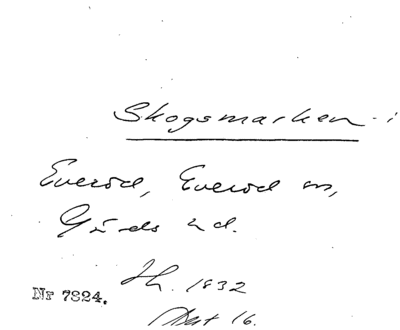 Skogsmarken
Everöd, Everöd sn,
Gärds hd.
Jh. 1832
Nr 7824.
Akt 16.